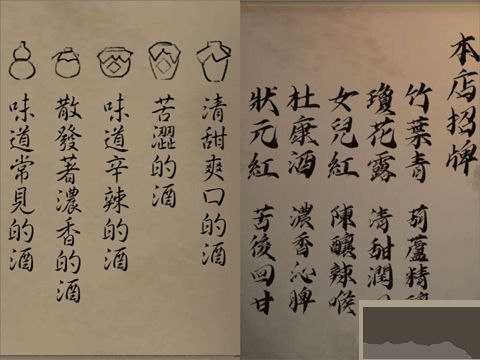 清甜爽口的酒
苦澀的酒
味道辛辣的酒
散發著濃香的酒
味道常見的酒
本店招牌
竹葉青 葫蘆精
瓊花露 清甜潤
女兒紅 陳釀辣喉
杜康酒 濃香沁脾
狀元紅 苦後回甘